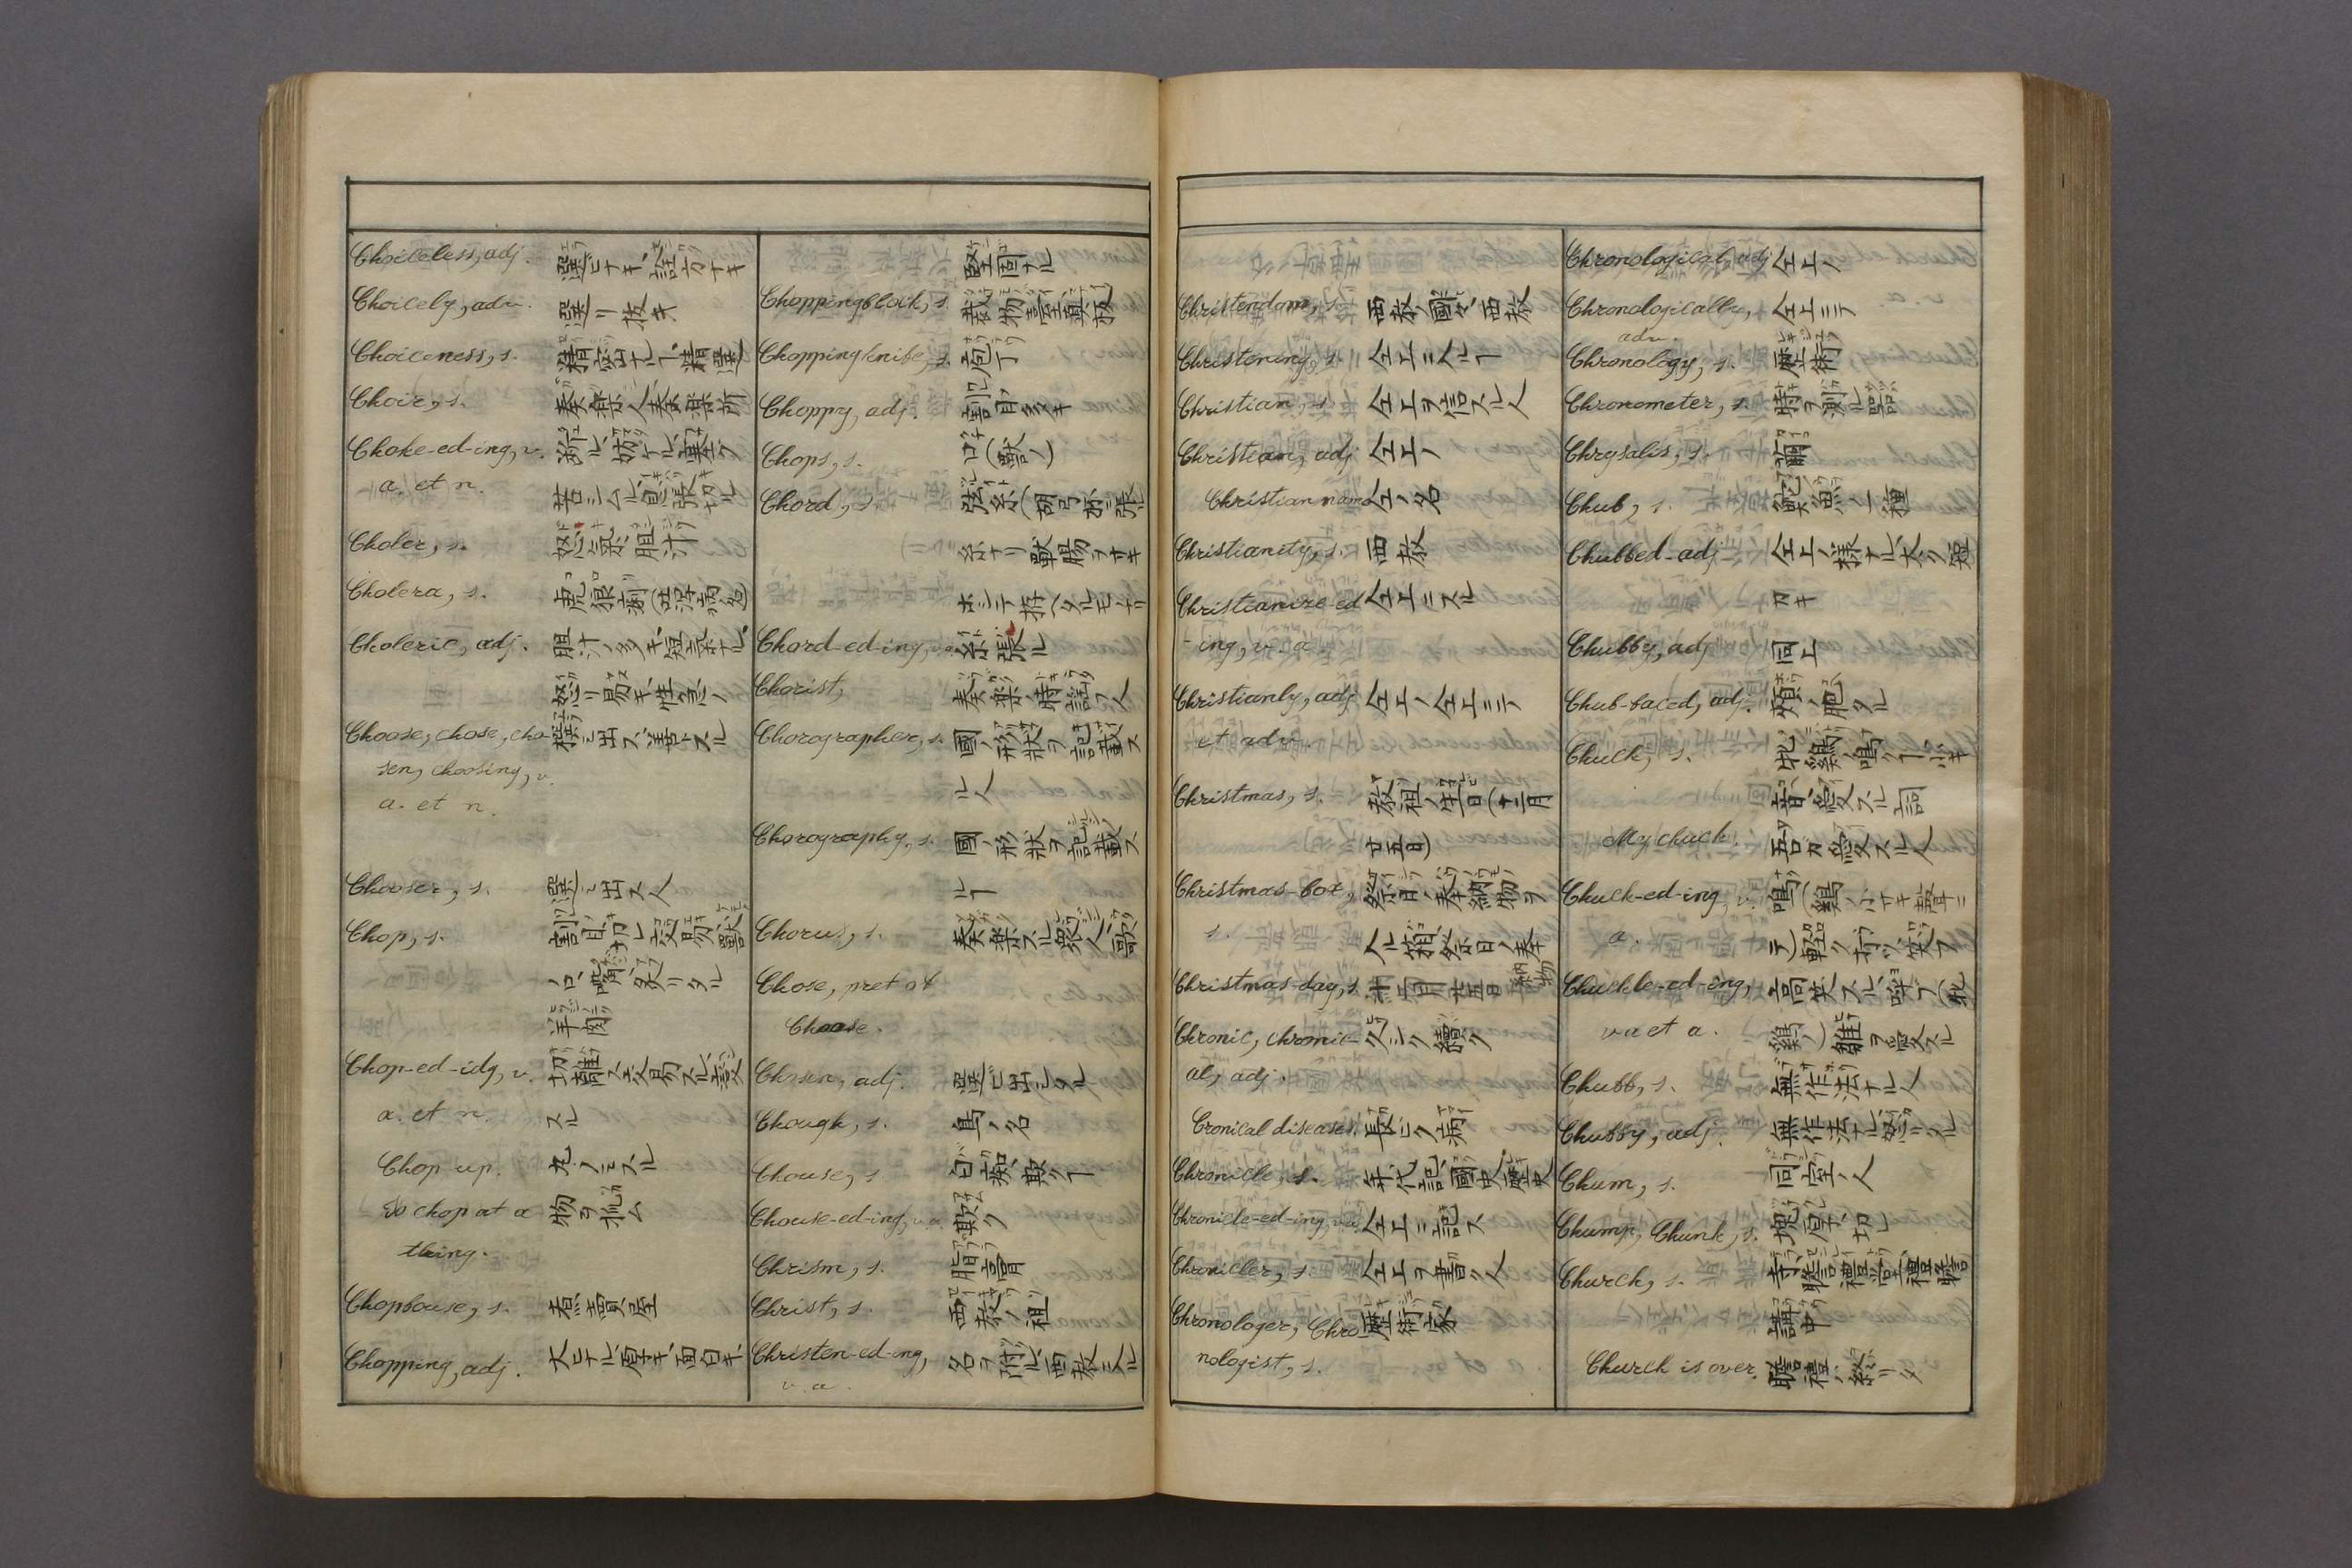 Choiceless, adj. 選ビナキ、詮方ナキ
Choicely, adv. 選リ抜キ
Choiceness, s. 精密ナルヿ、精選
Choir, s. 奏樂人、奏樂所
Choke-ed-ing, v. 妨ケル、塞ク
a. et n. 苦シムル、息張切ル
Choler, s. 怒氣、胆汁
Cholera, s. 虎狼痢
Choleric, adj. 胆汁ノ多キ、短氣ナル、
怒リ易キ、性急ノ
Choose, chose, cho- 撰ミ出ス、善トスル
sen, choosing, v.
a. et n.
Chooser, s. 選ビ出ス人
Chop, s. 割目、切レ、交易、獸
ノ口、嘴、炙リタル
羊肉
Chop-ed-idg, v. 切離ス、交易スル、変
a. et n. スル
Chop up. 丸ノミスル
To chop at a 物ヲ
thing.
Chophouse, s. 煮賣屋
Chopping, adj. 大ナル、厚キ、面白キ、
堅固ナル
Choppingblock, s. 裁物臺、真板
Choppingknife, s. 庖丁
Choppy, adj. 割目多キ
Chops, s. 口(獸ノ)
Chord, s. 弦、糸(胡弓
糸ナリ獸腸ヲ
Chord-ed-ing, v.a. 糸張ル
Chorist, 奏樂ノ時謡フ人
Chorographer, s. 國ノ形狀ヲ記載ス
ル人
Chorography, s. 國ノ形狀ヲ記載ス
ルヿ
Chorus, s. 奏樂スル衆人、歌
Chose, pret of
Choose.
Chosen, adj. 選ビ出シタル
Chough, s. 鳥ノ名
Chouse, s. 白痴、欺クヿ
Chouse-ed-ing, v.a. 欺ク
Chrism, s. 脂膏
Christ, s. 西教ノ祖
Christen-ed-ing, 名ヲ附ル、西教ニ入ル
v. a.
Christendom, s. 西教ノ國々、西教
Christening, s. 仝上ニ入ルヿ
Christian, s. 仝上ヲ信スル人
Christian, adj. 仝上ノ
Christian name 仝ノ名
Christianity, s. 西教
Christianize-ed 仝上ニスル
-ing, v. a.
Christianly, adj. 仝上ノ、仝上ニテ
et adv.
Christmas, s. 教祖ノ生日(十二月
廿五日)
Christmas-box, 祭日ノ奉納物ヲ
s. 入ル箱、祭日ノ奉
納物
Christmas-day, s. 十二月廿五日
Chronic, chronic- 久シク續ク
al, adj.
Cronical diseases. 長ビク病
Chronicle, s. 年代記、國史、歷史
Chronicle-ed-ing, v.a. 仝上ニ記ス
Chronicler, s. 仝上ヲ書ク人
Chronologer, Chro- 歷術家
nologist, s.
Chronological, adj. 仝上ノ
Chronologically, 仝上ニテ
adv.
Chronology, s. 歷術
Chronometer, s. 時ヲ測ル器
Chrysalis, s. 蛹
Chub, s. 魚ノ一種
Chubbed-adj. 仝上ノ様ナル、太ク短
カキ
Chubby, adj. 同上
Chub-faced, adj. 頬ノ肥タル
Chuck, s. 牝鷄ノ鳴クヿ、小キ
音、愛スル詞
My chuck. 吾ガ愛スル人
Chuck-ed-ing, v. 鳴ク(鷄ノ小サキ聲ニ
a. テ)輕ク打ツ、笑フ
Chuckle-ed-ing, 高笑スル、呼フ(牝
v.a et a. 鷄ノ)雛ヲ愛スル
Chuff, s. 無作法ナル人
Chuffy, adj. 無作法ナル、怒リタル
Chum, s. 同室ノ人
Chump, Chunk, s. 塊、厚
Church, s. 寺、瞻禮堂、
講中
Church is over. 瞻禮ノ終リタ